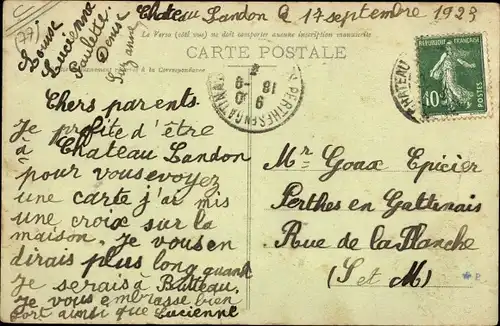 (77)
Louise
Lucienne
Paulette
Denise
Suzanne
Chateau Landon le 17 septembre 1923
Le Verso (côté vue) ne doit comporter aucune inscription manuscrite
CARTE POSTALE
à la Correspondance
PERTHES EN GATINAIS
18 -9
CHATEAU
RÉPUBLIQUE FRANÇAISE
10c
POSTES
Chers parents.
Je profite d'être
à Chateau Landon
pour vous envoyer
une carte j'ai mis
une croix sur la
maison. Je vous en
dirais plus long quand
Je serais à Butteau.
Je vous embrasse bien
fort ainsi que Lucienne
Mr Goax Epicier
Perthes en Gattinais
Rue de la Planche
(S et M)